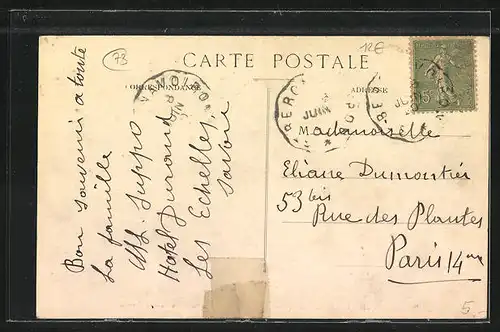 73
12E
CARTE POSTALE
CORRESPONDANCE
ADRESSE
JUIN
Bon souvenir a toute
la famille
Hotel Durand
Les Echelles
Savoie
Mademoiselle
Eliane Dumontier
53 bis
Rue des Plantes
Paris 14me
5-